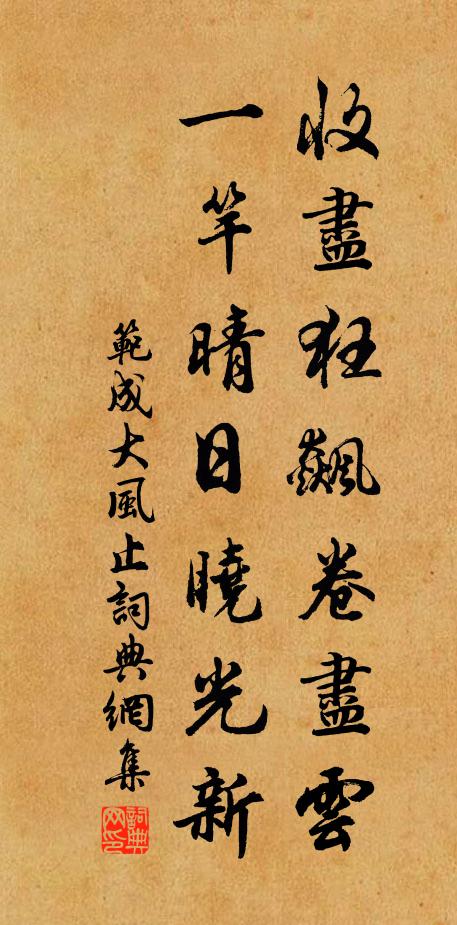 收盡狂飆卷盡雲
一竿晴日曉光新
範成大風止詞典網集
詞典網印